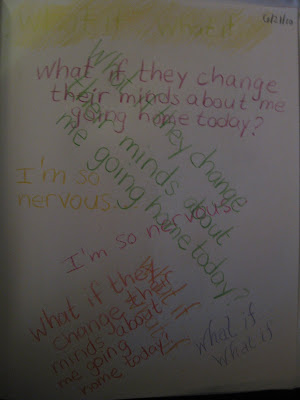 What if What if
What if they change
their minds about me
going home today?
What if they change
their minds about
me going home today?
I'm so
nervous.
I'm so nervous
What if they
change their
minds about
me going
home today?
what if
what is